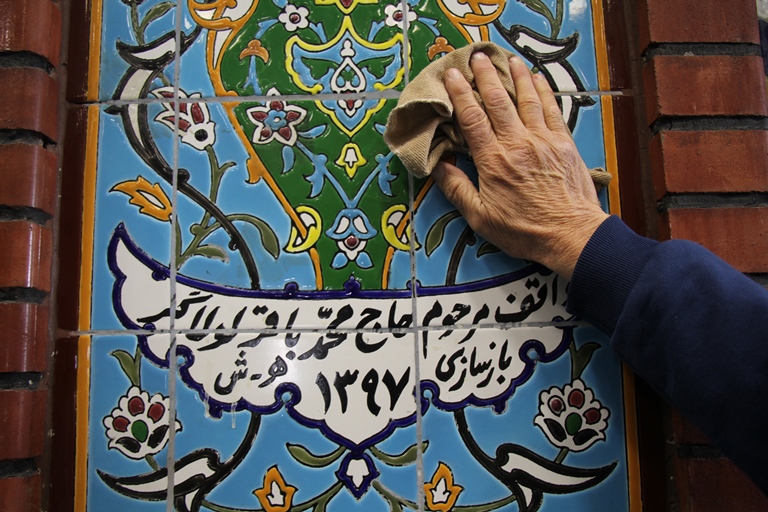 واقف مرحوم حاج محمد باقر لولاگر
بازسازی ۱۳۹۷ هـ-ش